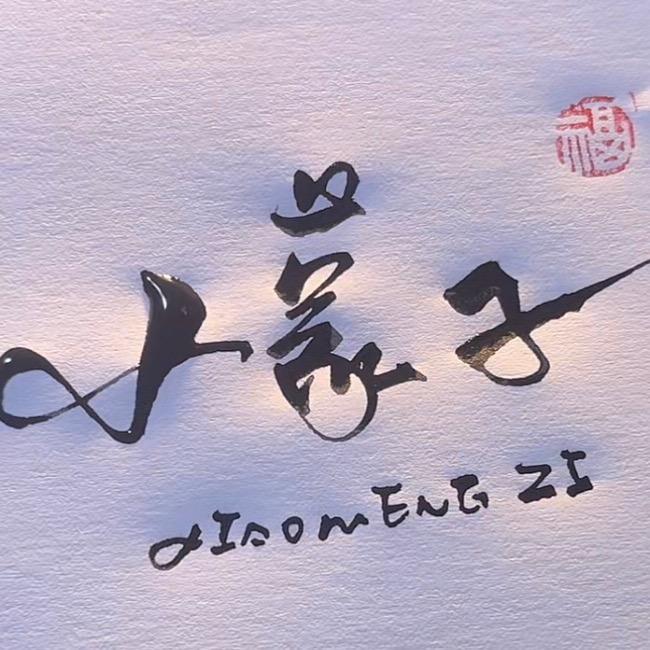 福
小蒙子
XIAOMENG ZI